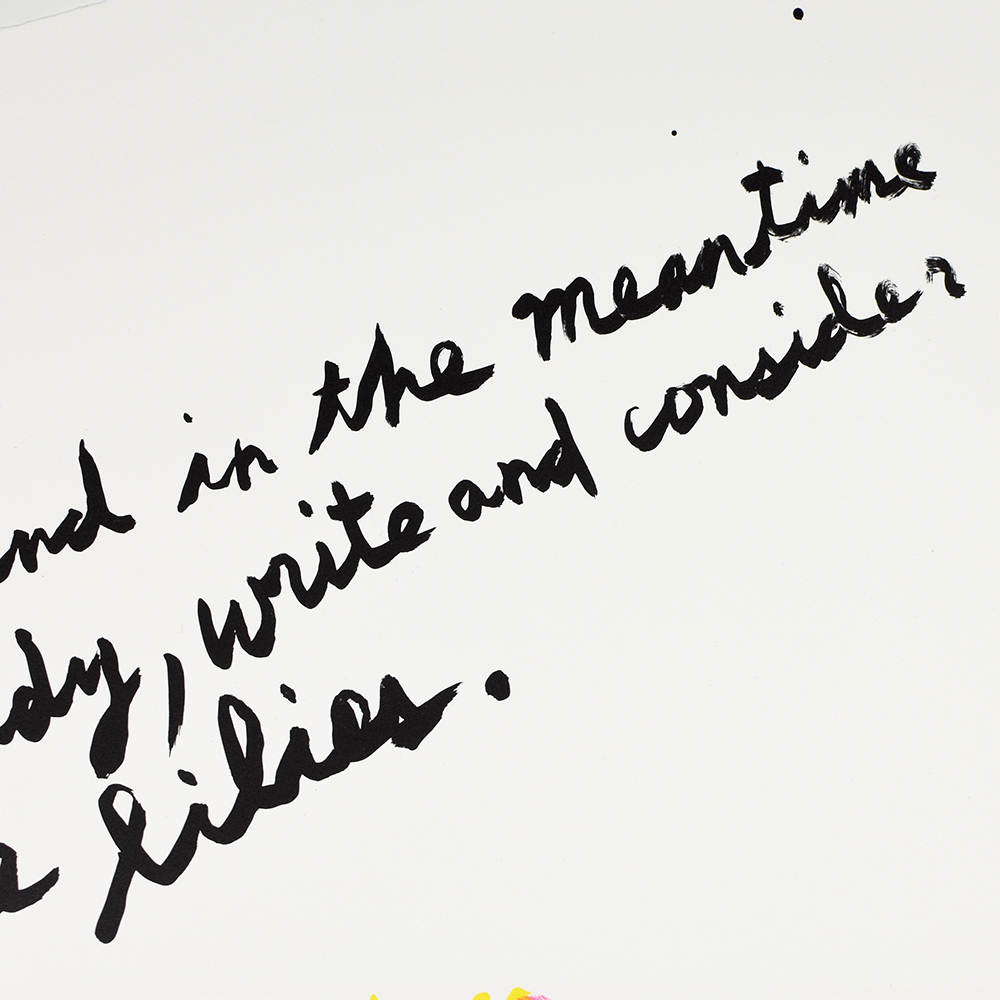 nd in the meantime
dy, write and consider
e lilies.